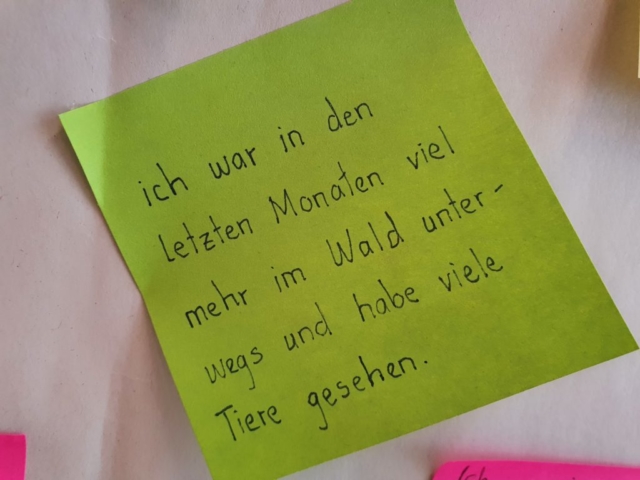 ich war in den
letzten Monaten viel
mehr im Wald unter-
wegs und habe viele
Tiere gesehen.